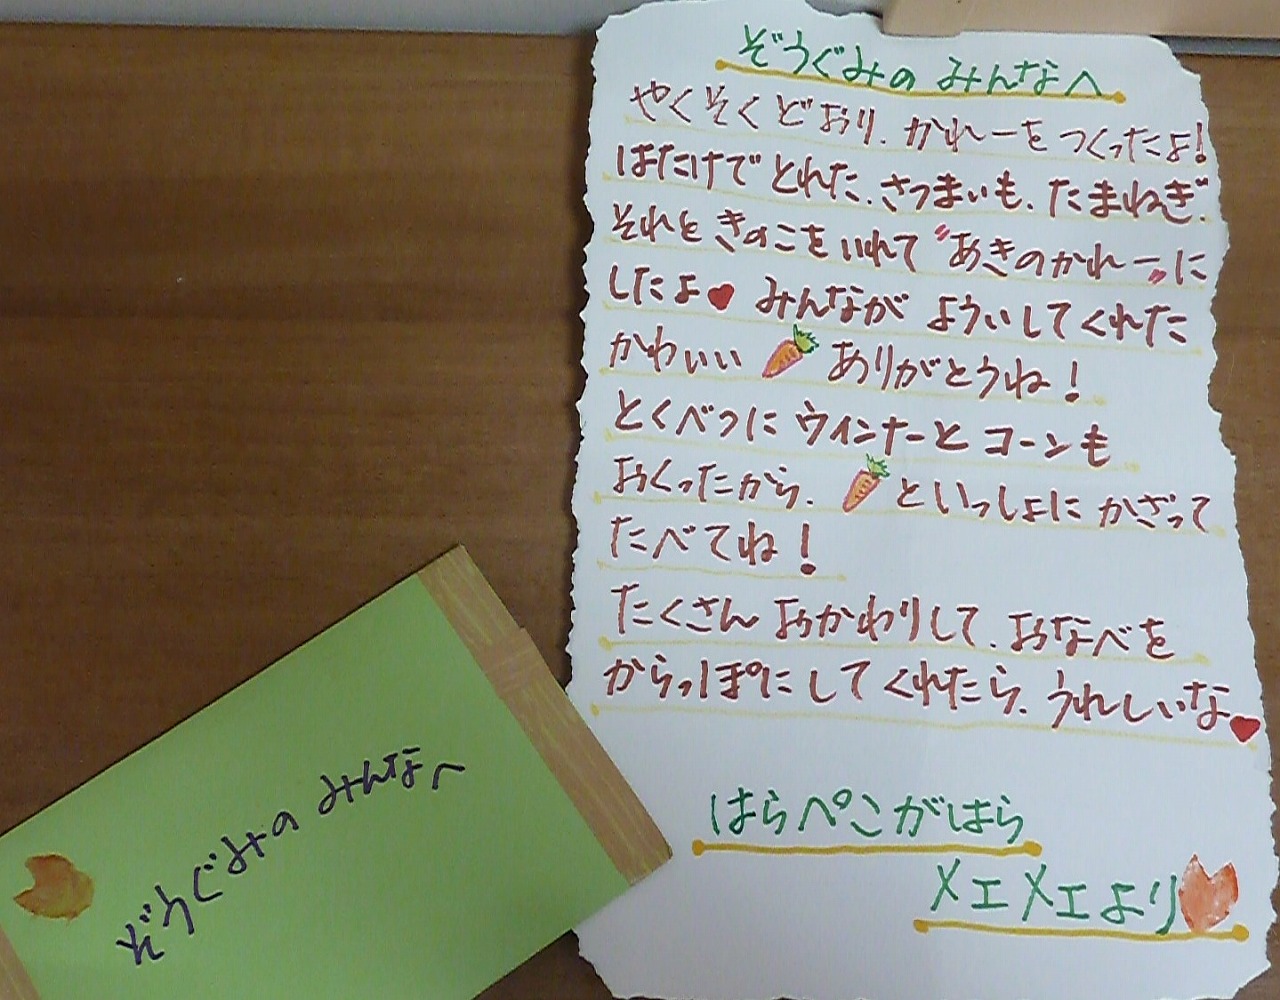 ぞうぐみの みんなへ
やくそくどおり、かれーを つくったよ！
はたけで とれた、さつまいも、たまねぎ、
それと きのこを いれて "あきのかれー"に
したよ♥ みんなが よういしてくれた
かわいい ありがとうね！
とくべつに ウインナーと コーンも
おくったから、 といっしょに かざって
たべてね！
たくさん おかわりして、おなべを
からっぽに してくれたら、うれしいな♥
はらぺこがはら
メエメエより
ぞうぐみの みんなへ